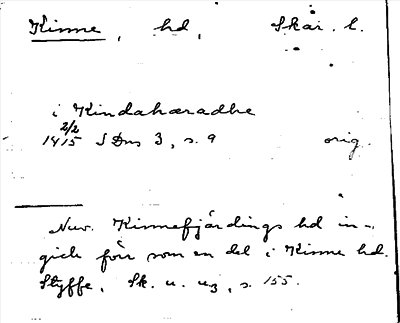 Kinne, hd, Skar. l.
i Kindahæradhe
2/2
1415 SDns 3, s. 9 orig.
Nuv. Kinnefjärdings hd in-
gick förr som en del i Kinne hd.
Styffe, Sk. u. u3, s. 155.